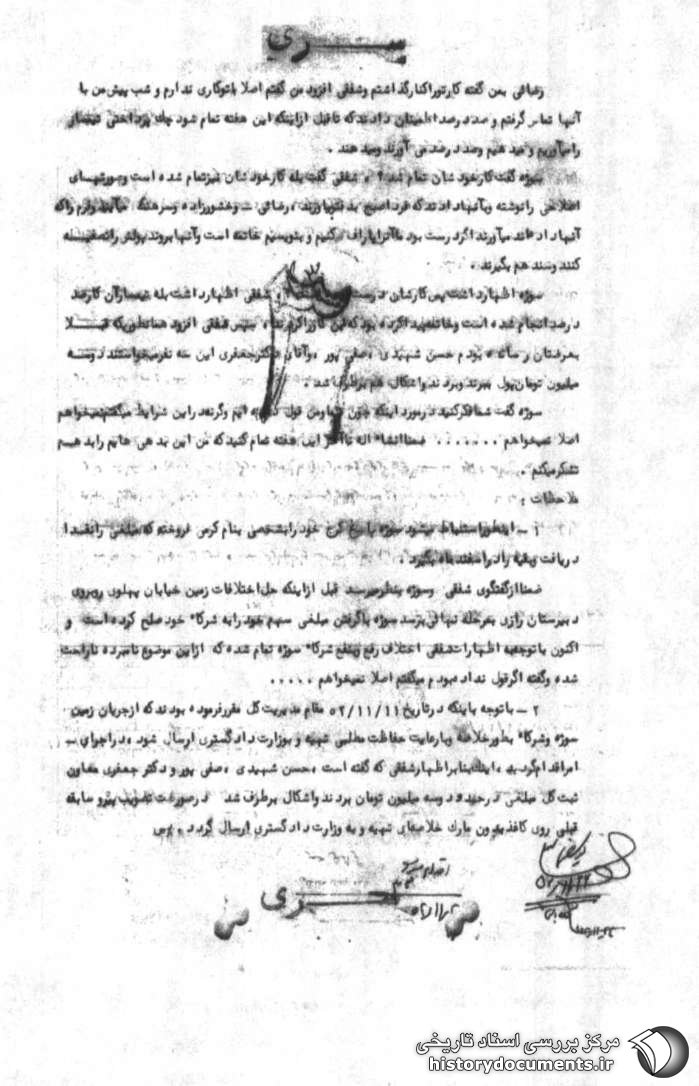 سری
رضائی بمن گفته کار تو را کنار گذاشتم و شفقی افزود من گفتم اصلا باتو کاری ندارم و شب پیش من با
آنها تماس گرفتم و صد درصد اطمینان دادند که تا قبل از اینکه این هفته تمام شود چک پرداختی تیمسار
را میآوریم و میدهیم وصد درصد می آورند ومیدهند .
سوژه گفت کار خودشان تمام شد ؟ ، شفقی گفت بله کار خودشان نیز تمام شده است و صورتهای
اصلاحی را نوشته و بآنها دادند که فردا صبح بدفتر بیاورند ، رضائی و خشورزاده و سرهنگ میآیند
آنها داده اند میآورند اگر درست بود ما آنرا پاراف میکنیم و بنویسیم خاتمه است و آنها بروند پولش را
کنند وسند هم بگیرند .
سوژه اظهار داشت پس کارشان درست شفقی اظهار داشت بله تیمسار آن کار صد
درصد انجام شده است بود که این کار را سپس شفقی افزود همانطوریکه قبلا
بعرضتان رسانده بودم حسن شهیدی ، صفی پور ، وآقای دکتر جعفری این سه نفر میخواستند دوسه
میلیون تومان پول ببرند وبردند واشکال هم برطرف شد .
سوژه گفت شما فکر کنید در مورد اینکه چون من قول داده ایم وگرنه در این شرایط میگفتم نمیخواهم
اصلا نمیخواهم . . . . . . . ضمنا انشاء اله تا آخر این هفته تمام کنید که من این بدهی هایم را بدهم
تشکر میکنم .
ملاحظات :
۱ – اینطور استنباط میشود سوژه باغ کرج خود را بشخصی بنام کرمی فروخته که مبلغی را نقدا
دریافت وبقیه را در اسفند ماه بگیرد .
ضمنا از گفتگوی شفقی وسوژه بنظر میرسد قبل از اینکه حل اختلافات زمین خیابان پهلوی روبروی
دبیرستان رازی بمرحله نهائی برسد سوژه با گرفتن مبلغی سهم خود را به شرکاء خود صلح کرده است و
اکنون با توجه به اظهارات شفقی اختلاف رفع وبنفع شرکاء سوژه تمام شده که از این موضوع نامبرده ناراحت
شده وگفته اگر قول نداده بودم میگفتم اصلا نمیخواهم . . . . .
۲ – با توجه باینکه در تاریخ ۵۲/۱۱/۱۱ مقام مدیریت کل مقرر فرموده بودند که از جریان زمین
سوژه وشرکاء بطور خلاصه وبا رعایت حفاظت مطلبی تهیه و بوزارت دادگستری ارسال شود ، در اجرای
امر اقدام گردید ، اینک بنابر اظهار شفقی که گفته است ، حسن شهیدی ، صفی پور و دکتر جعفری معاون
ثبت کل مبلغی در حدود دوسه میلیون تومان بردند واشکال برطرف شد در صورت تصویب پیرو سابقه
قبلی روی کاغذ بدون مارک خلاصه ای تهیه و به وزارت دادگستری ارسال گردد .
سری
مرکز بررسی اسناد تاریخی
historydocuments.ir